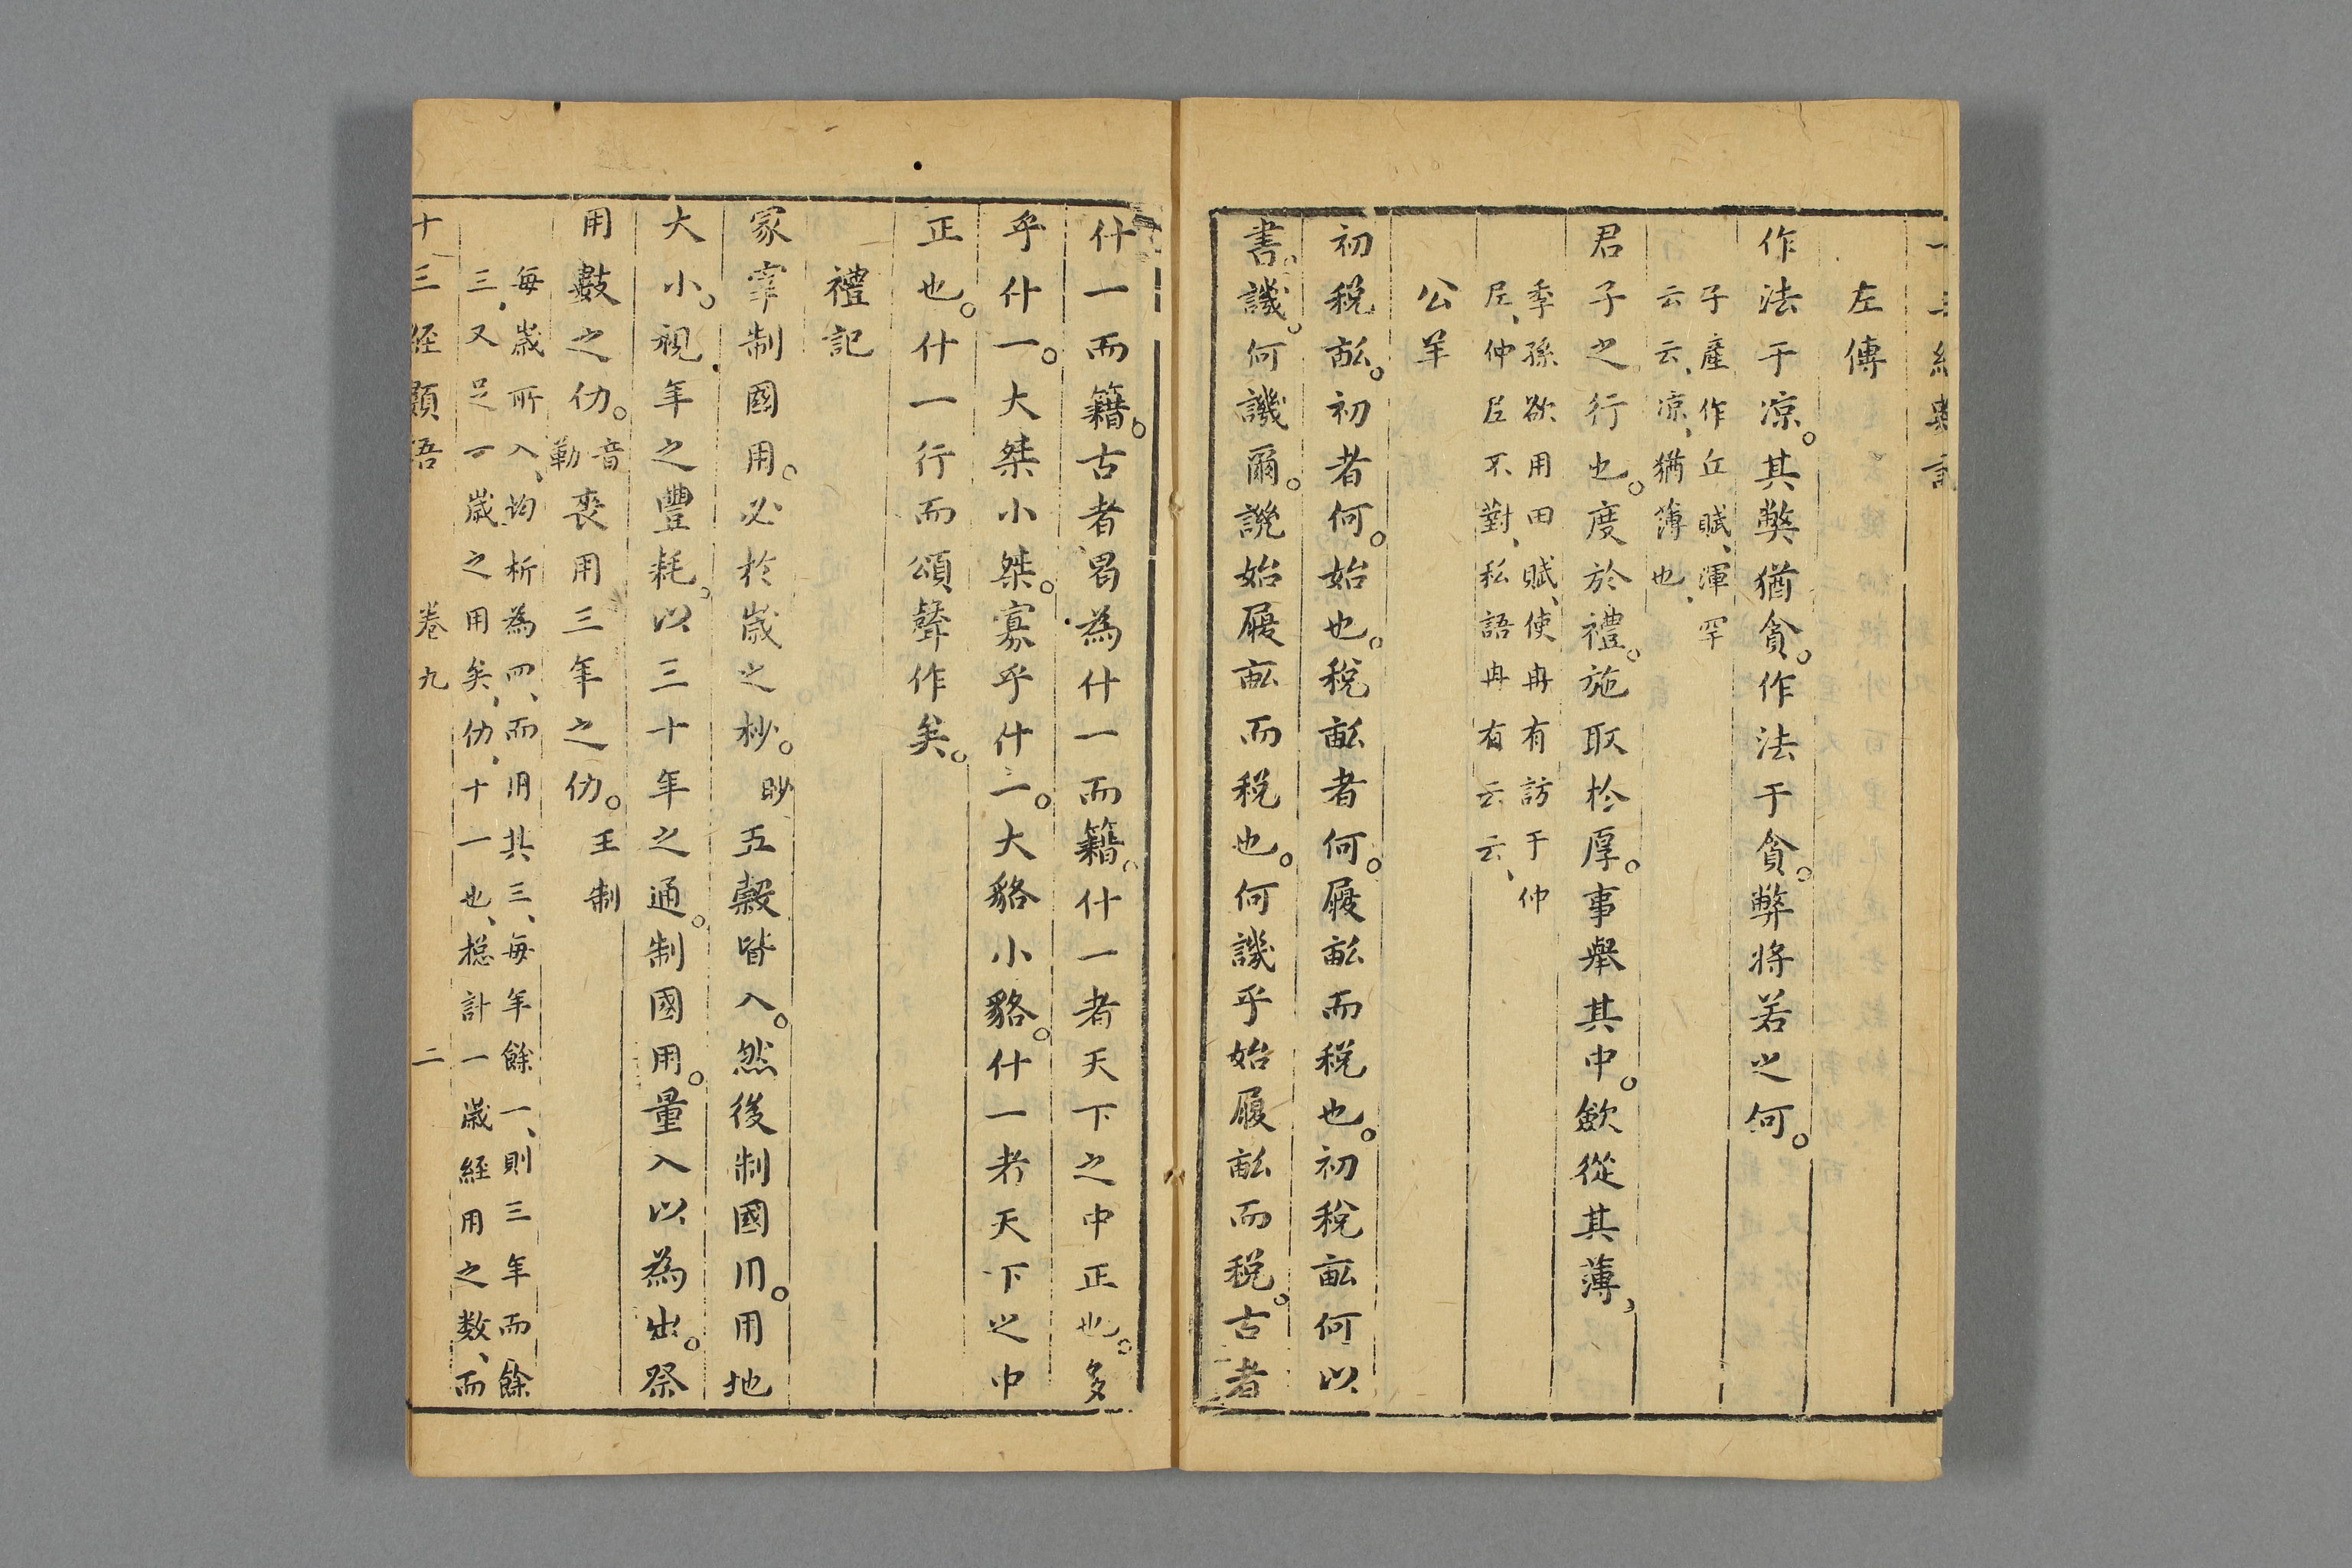 左傳
作法于凉。其獘猶貪。作法于貪。弊將若之何。
子產作丘賦、渾罕
云云、凉、猶薄也、
君子之行也。度於禮。施取於厚。事舉其中。歛從其薄、
季孫欲用田賦、使冉有訪于仲
尼、仲尼不對、私語冉有云云、
公羊
初稅畝。初者何。始也。稅畝者何。履畝而稅也。初稅畝何以
書。譏。何譏爾。譏始履畝而稅也。何譏乎始履畝而稅。古者
什一而籍。古者曷為什一而籍。什一者天下之中正也。多
乎什一。大桀小桀。寡乎什一。大貉小貉。什一者天下之中
正也。什一行而頌聲作矣。
禮記
冢宰制國用。必於歲之杪。眇五糓皆入。然後制國用。用地
大小。視年之豐耗。以三十年之通。制國用。量入以為出。祭
用數之仂。音勒喪用三年之仂。王制
每歲所入、均析為四、而用共三、每年餘一、則三年而餘
三、又足一歲之用矣、仂、十一也、總計一歲經用之数、而
十三經類語 卷九 二